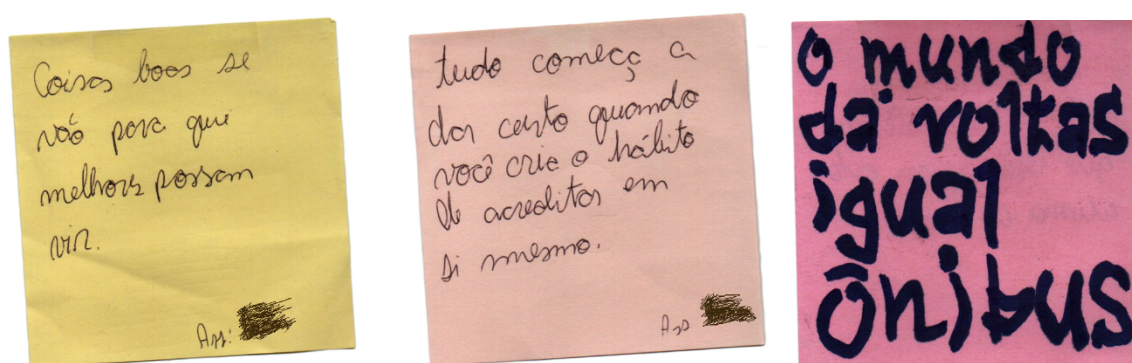 Coisas boas se
vão para que
melhores possam
vir.
Ass:
tudo começa a
dar certo quando
você cria o hábito
de acreditar em
si mesmo.
Ass
o mundo
dá voltas
igual
ônibus